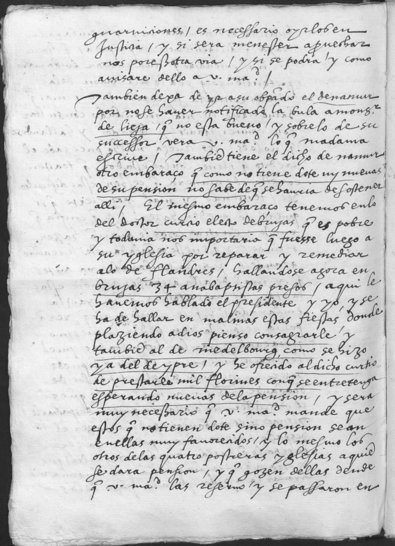 guarniciones / es necessario oyrlo ben
Justicia / y si sera menester aprovechar
nos por esta otra via / y si se podra / y como
avisare dello a v. mad. /
Tambien dexa de yr a su obpado el de namur
por no se haver notificado la bula a monsr
de lieja / q no esta bueno / y sobrelo de su
successor vera v. mad. lo q madama
escrive / Tambien tiene el dicho de namur
otro embaraço q como no tiene dote ny nuevas
de su pension no sabe de q se havria de sostener
alli / El mesmo embaraço tenemos en lo
del doctor curtio electo de brujas q es pobre
y todavia nos importaria q fuesse luego a
su yglesia por reparar y remediar
a lo de flandres / hallandose agora en
brujas 34 anabaptistas presos / aqui le
havemos hablado el presidente y yo, y se
ha de hallar en malinas estas fiestas donde
plaziendo a dios pienso consagrarle y
tambien al de medelbourg como se hizo
ya del de ypre / y he ofrecido al dicho curtio
de prestarle mil florines con q se entretenga
esperando nuevas de la pension / y sera
muy necessario q v. mad. mande que
estos q no tienen dote sino pension sean
en ellas muy favorecidos / y lo mesmo los
otros de las quatro postreras yglesias a quien
se dara pension / y q gozen dellas dende
q v. mad. las reservo / y se passaron en